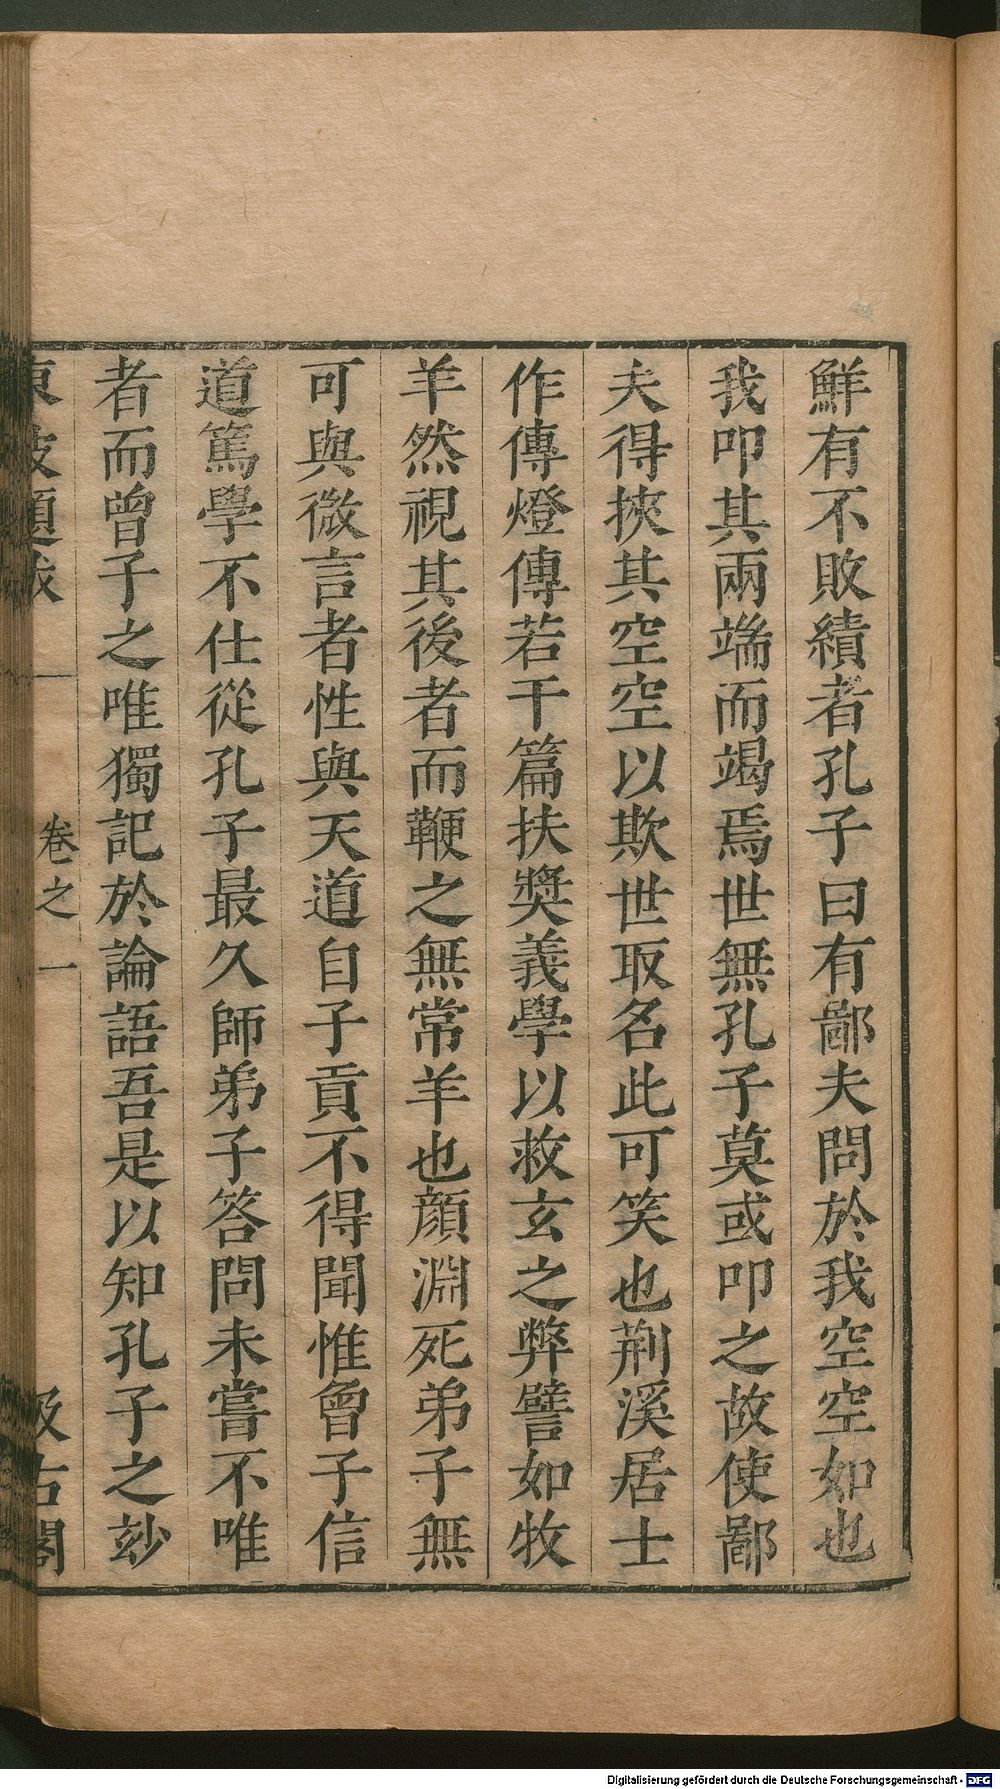 鮮有不敗績者孔子曰有鄙夫問於我空空如也
我叩其兩端而竭焉世無孔子莫或叩之故使鄙
夫得挾其空空以欺世取名此可笑也荆溪居士
作傳燈傳若干篇扶奬義學以救玄之弊譬如牧
羊然視其後者而鞭之無常羊也顔淵死弟子無
可與微言者性與天道自子貢不得聞惟曾子信
道篤學不仕從孔子最久師弟子答問未嘗不唯
者而曾子之唯獨記於論語吾是以知孔子之玅
東坡題跋 卷之一 汲古閣
Digitalisierung gefördert durch die Deutsche Forschungsgemeinschaft - DFG